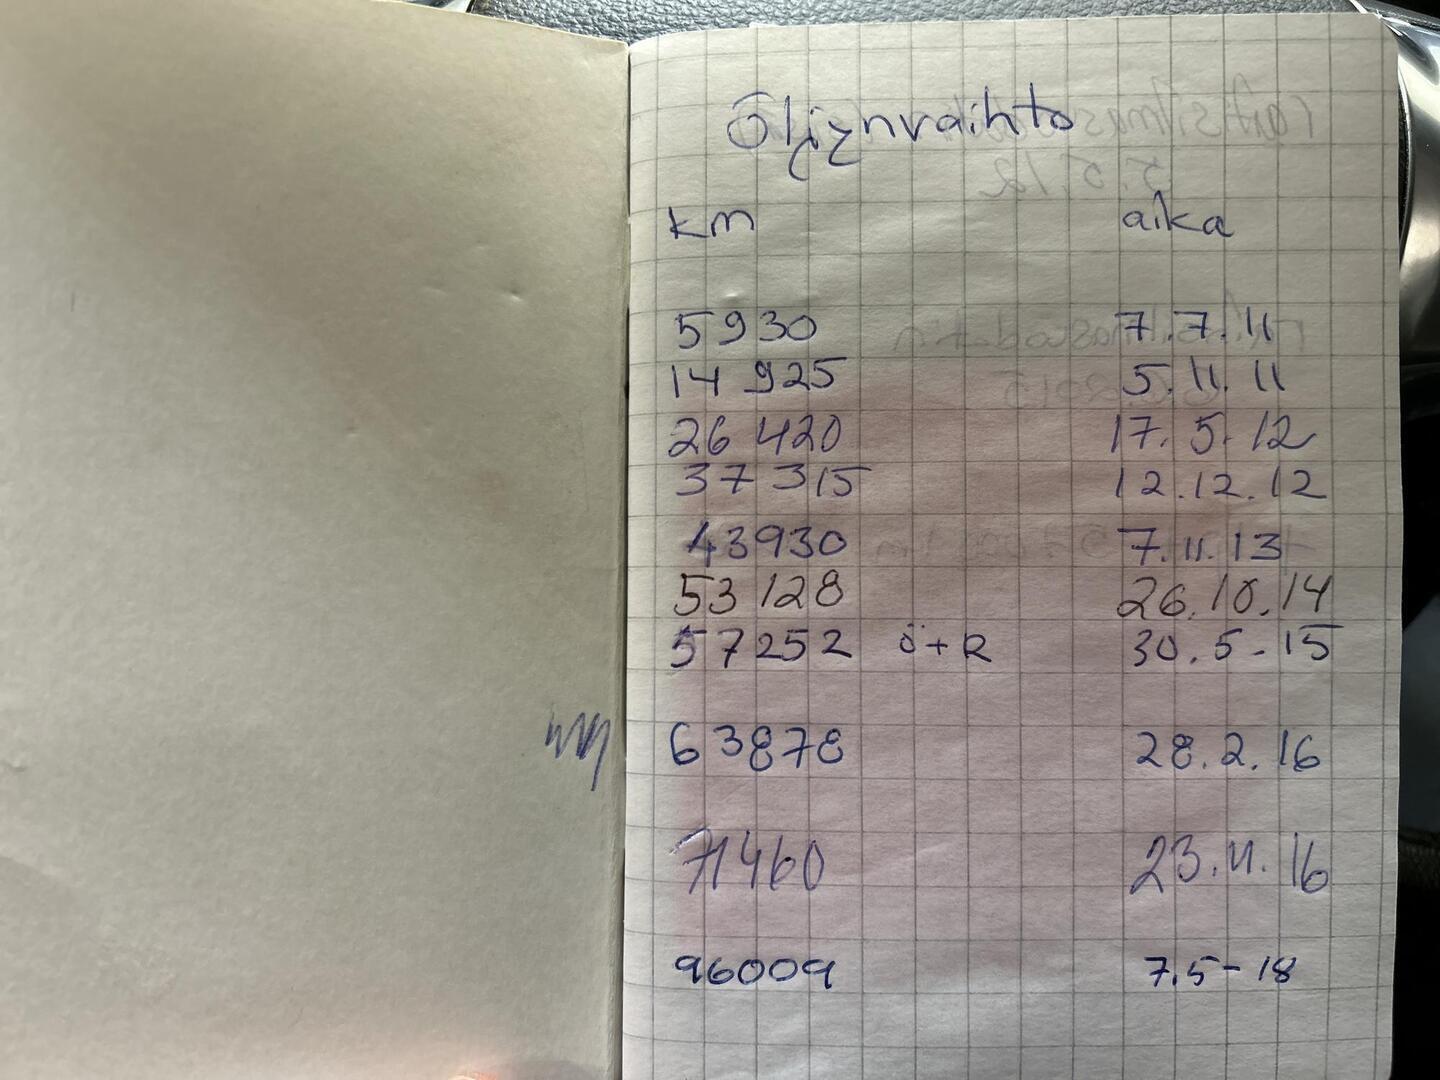 Öljynvaihto
km aika
5930 7.7.11
14 925 5.11.11
26 420 17.5.12
37 315 12.12.12
43930 7.11.13
53 128 26.10.14
57252 ö+R 30.5-15
63878 28.2.16
71460 23.11.16
96009 7.5-18